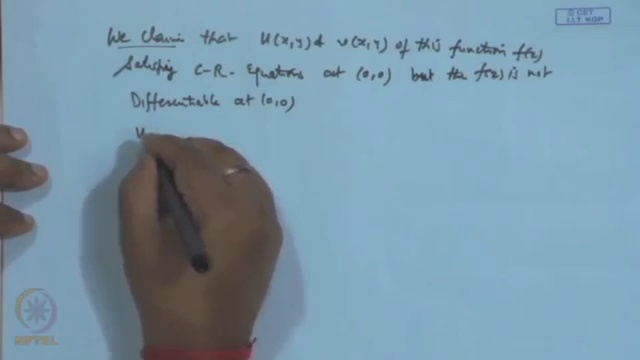 © CET
I.I.T. KGP
We claim that u(x,y) & v(x,y) of this function f(z)
Satisfying C-R- Equations at (0,0) but the f(z) is not
Differentiable at (0,0)
NPTEL